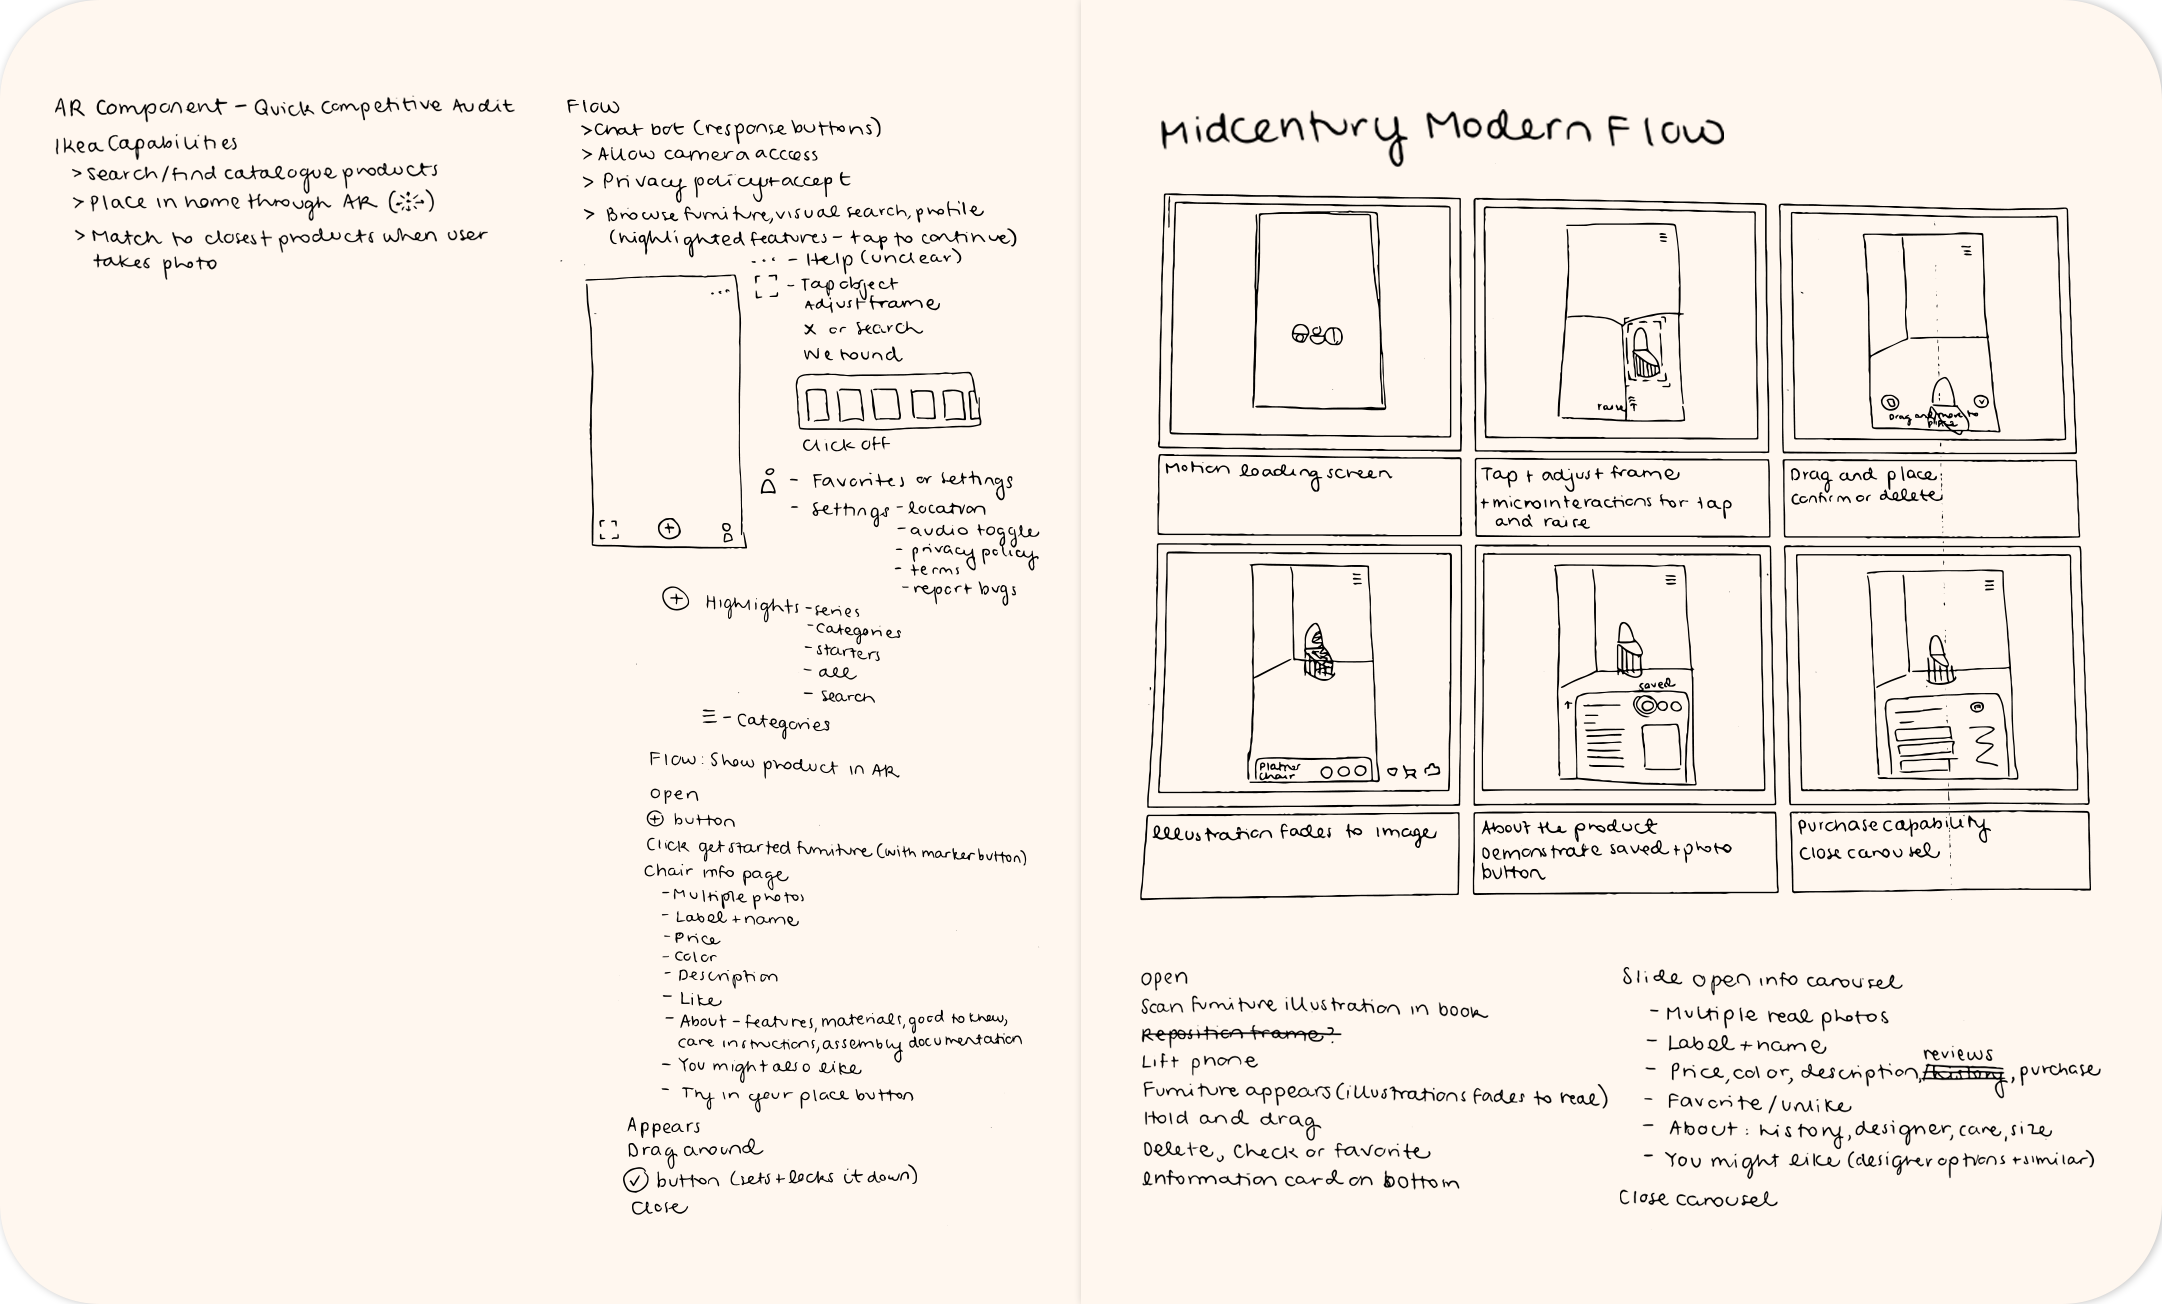 AR Component - Quick Competitive Audit
Ikea Capabilities
> Search/find catalogue products
> Place in home through AR ( )
> Match to closest products when user
takes photo
Flow
> Chat bot (response buttons)
> Allow camera access
> Privacy policy + accept
> Browse furniture, visual search, profile
(highlighted features - tap to continue)
... - Help (unclear)
- Tap object
Adjust frame
x or search
We found
Click off
- Favorites or settings
- Settings - location
- audio toggle
- privacy policy
- terms
- report bugs
+ Highlights - series
- categories
- starters
- all
- search
≡ - Categories
Flow: Show product in AR
Open
+ button
Click get started furniture (with marker button)
Chair info page
- Multiple photos
- Label + name
- Price
- Color
- Description
- Like
- About - features, materials, good to know,
care instructions, assembly documentation
- You might also like
- Try in your place button
Appears
Drag around
✓ button (sets + locks it down)
Close
Midcentury Modern Flow
raise ↑
Drag and move to
place
Motion loading screen
Tap + adjust frame
+ microinteractions for tap
and raise
Drag and place
confirm or delete
Platner
Chair
saved
Illustration fades to image
About the product
Demonstrate saved + photo
button
Purchase capability
Close carousel
Open
Scan furniture illustration in book
Reposition frame?
Lift phone
Furniture appears (illustrations fades to real)
Hold and drag
Delete, check or favorite
Information card on bottom
Slide open info carousel
- Multiple real photos
- Label + name
reviews
- Price, color, description, history, purchase
- Favorite/unlike
- About: history, designer, care, size
- You might like (designer options + similar)
Close carousel